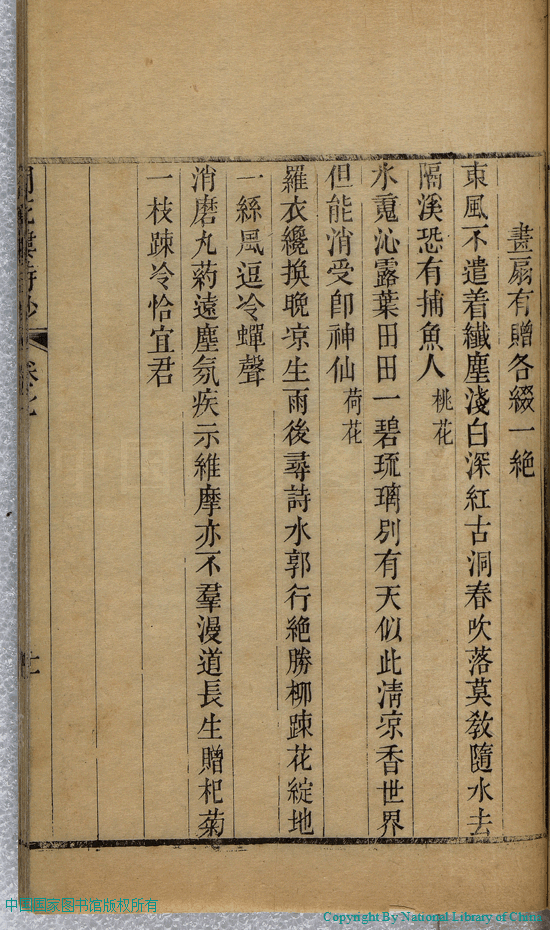 畫扇有贈各綴一絶
東風不遣着纖塵淺白深紅古洞春吹落莫教隨水去
隔溪恐有捕魚人 桃花
水䔰沁露葉田田一碧琉璃別有天似此清凉香世界
但能消受卽神仙 荷花
羅衣纔換晚凉生雨後尋詩水郭行絶勝柳踈花綻地
一絲風逗冷蟬聲
消磨丸葯遠塵氛疾示維摩亦不羣漫道長生贈杞菊
一枝踈冷恰宜君
花樓詩鈔 卷七
十一
中国国家图书馆版权所有
Copyright By National Library of China